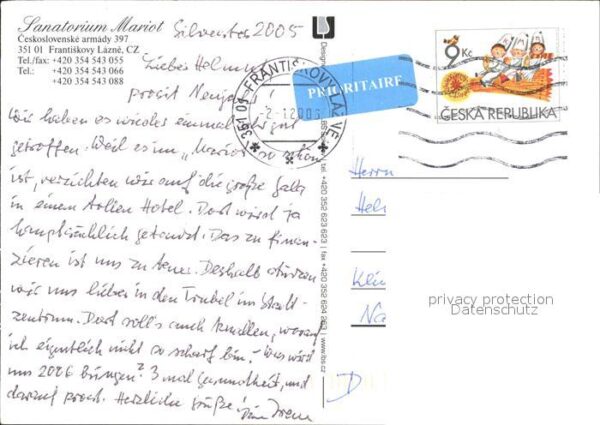 Sanatorium Mariot
Československé armády 397
351 01 Františkovy Lázně, CZ
Tel./fax: +420 354 543 055
Tel.: +420 354 543 066
+420 354 543 088
Silvester 2005
Lieber Helmut
prosit Neujahr!
Wir haben es wieder einmal sehr gut
getroffen. Weil es im „Mariot" so schön
ist, verzichten wir auf die große Gala
in einem Hotel. Dort wird ja
hauptsächlich getanzt. Das zu finan-
zieren ist uns zu teuer. Deshalb stürzen
wir uns lieber in den Trubel im Stadt-
zentrum. Dort soll's auch knallen, worauf
ich eigentlich nicht so scharf bin. Was wird
uns 2006 bringen? 3 mal Gesundheit, und
darauf prost. Herzliche Grüße! Irene
351 01 FRANTIŠKOVY LÁZNĚ
PRIORITAIRE
9 Kč
ČESKÁ REPUBLIKA
+420 352 623 623 | fax +420 352 624 263 | www.bs.cz
Herrn
Hel
Kli
Na
D
privacy protection
Datenschutz